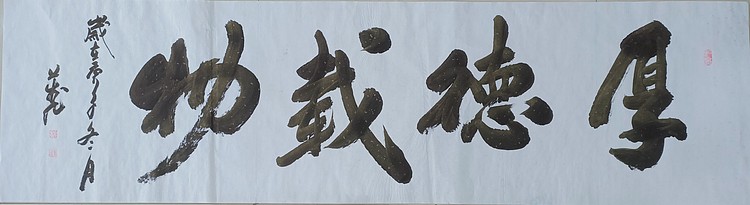 厚德載物
歲在庚子冬月